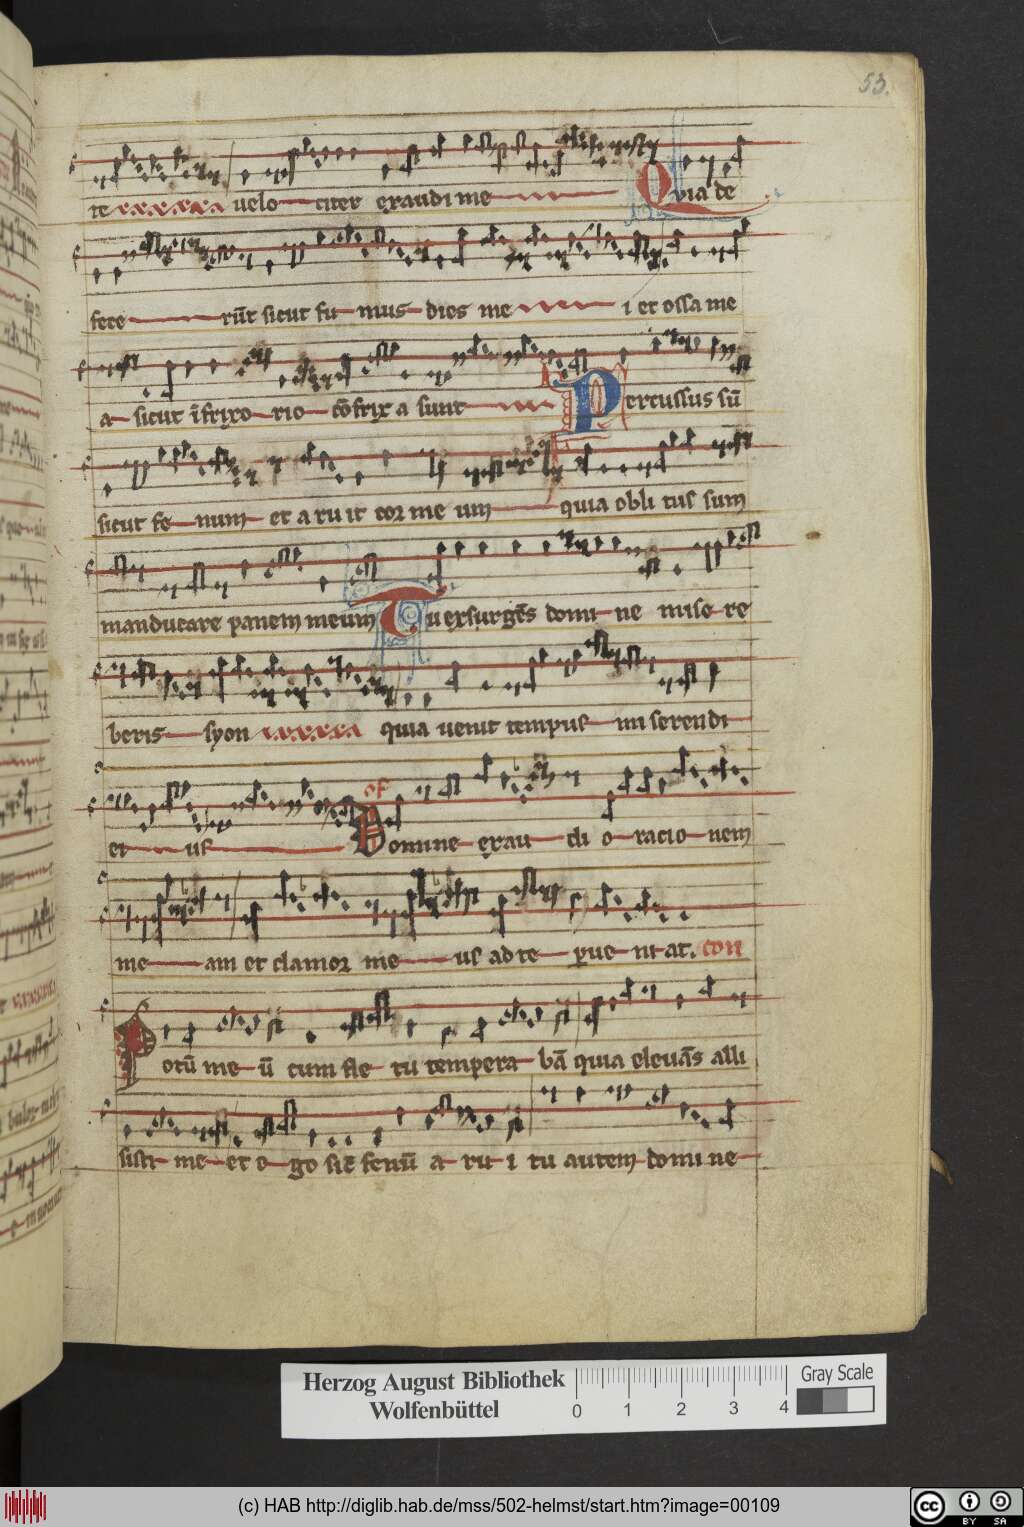 53.
te velo citer exaudi me Quia de
fece rūt sicut fu mus dies me i et ossa me
a sicut ī frixo rio cōfrixa sunt Percussus sū
sicut fe num et aruit cor me um quia obli tus sum
manducare panem meum Tu exsurgēs domi ne mise re
beris syon quia uenit tempus mi serendi
ei us of Domine exau di o racio nem
me am et clamor me us ad te pue ni at. con
Potū me ū cum fle tu tempera bā quia eleuās alli
sisti me et e go sic fenū a ru i tu autem domi ne
Herzog August Bibliothek
Wolfenbüttel
0 1 2 3 4
Gray Scale
(c) HAB http://diglib.hab.de/mss/502-helmst/start.htm?image=00109
cc BY SA